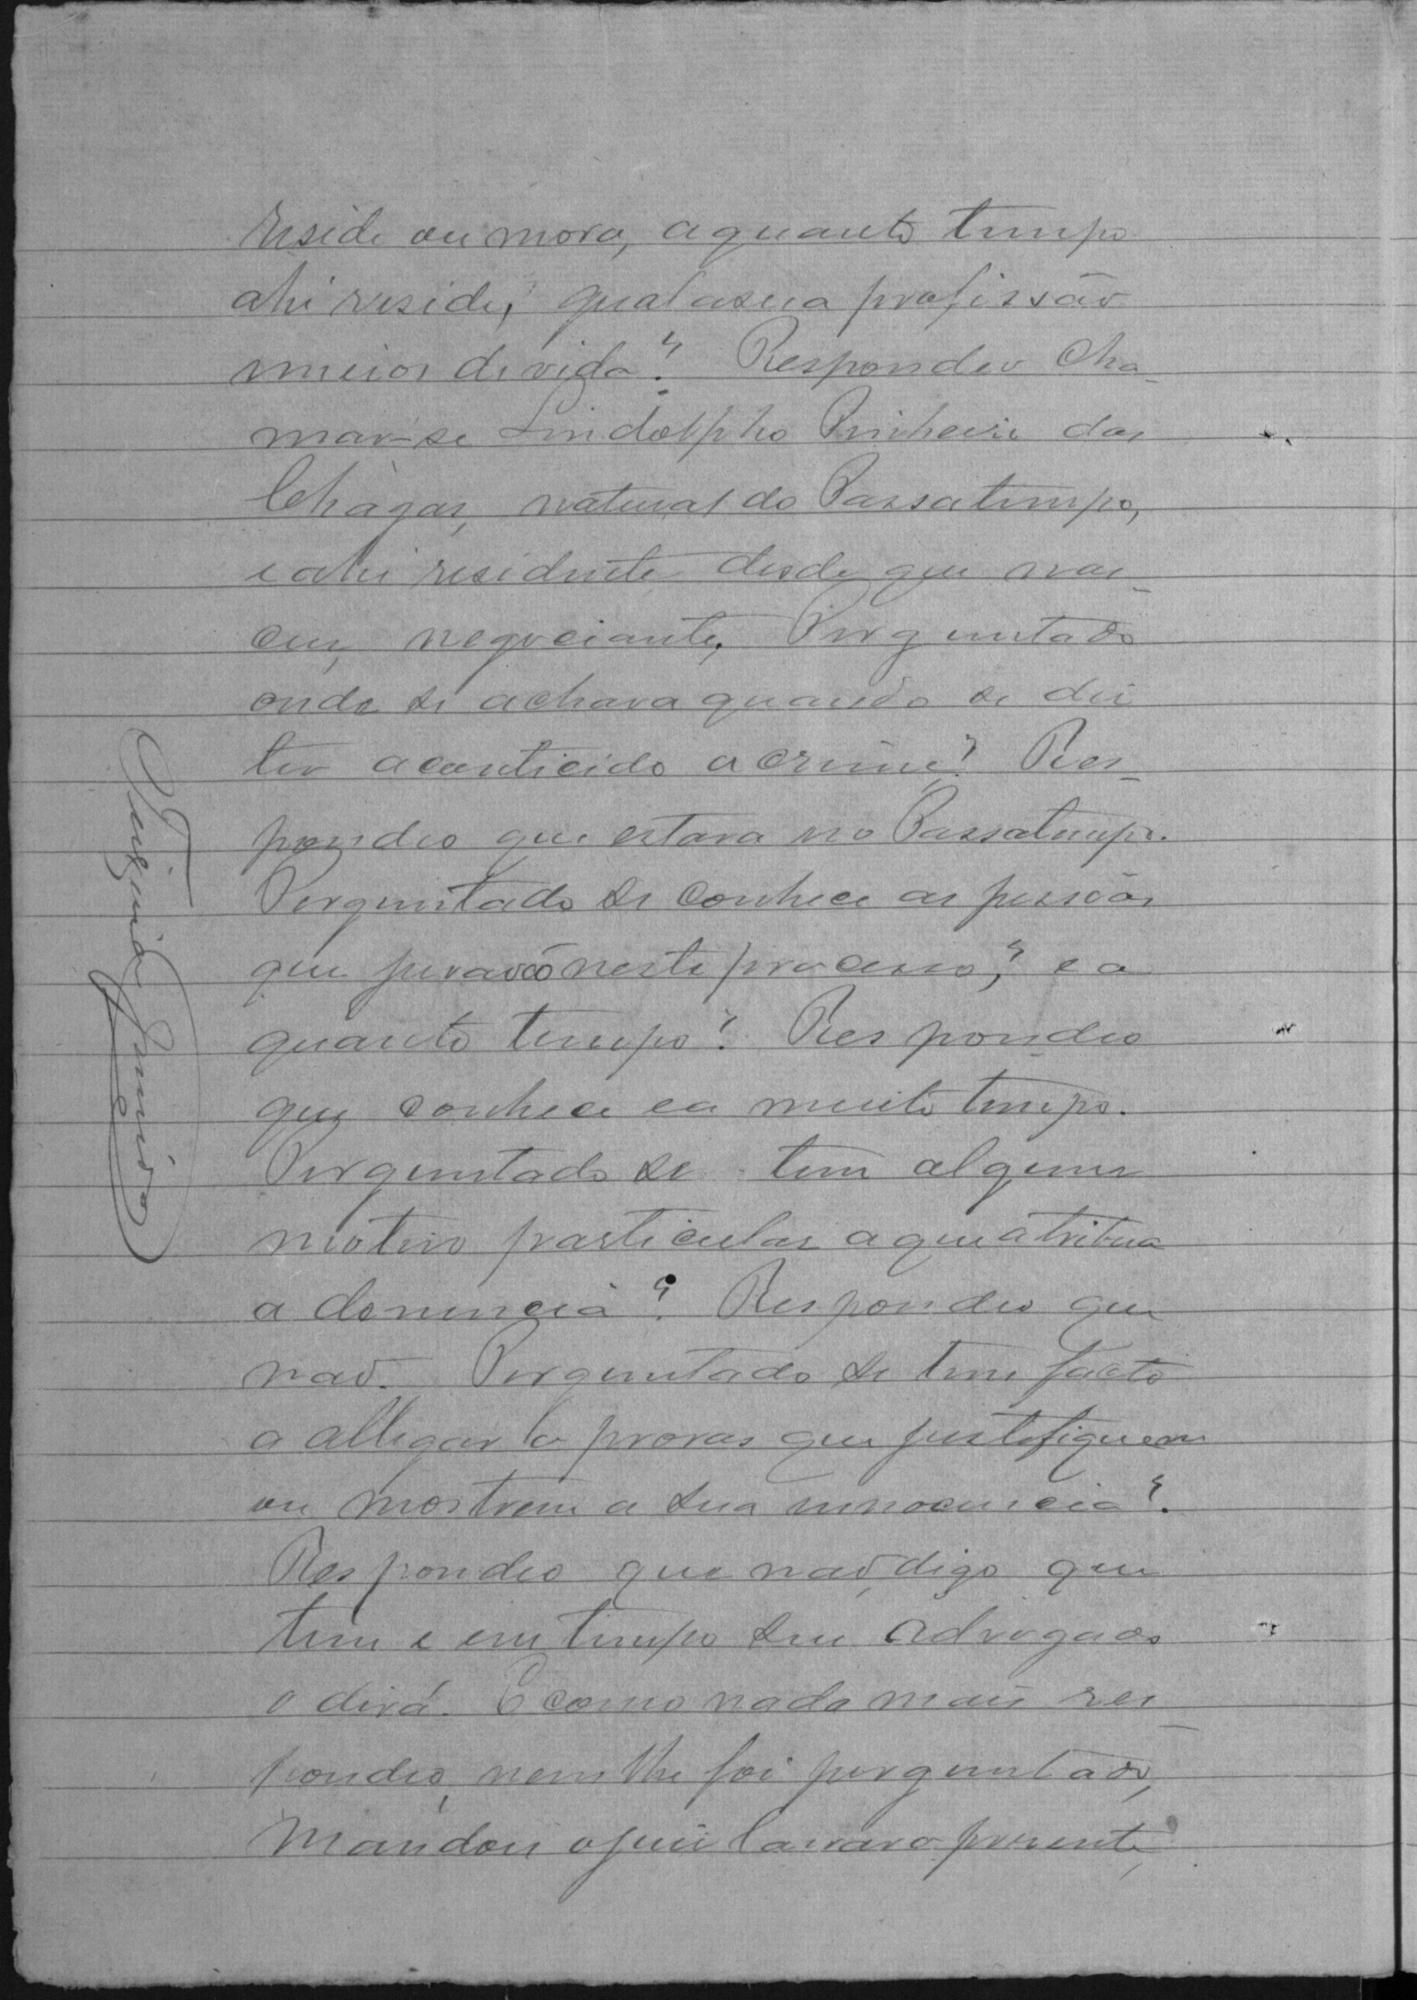 reside ou mora, a quanto tempo
ahi reside, qual a sua profissão
meios de vida? Respondeo cha-
mar-se Lindolpho Pinheiro das
Chagas, natural do Passatempo,
e ahi residente desde que nas-
ceu, negociante, Perguntado
onde se achava quando se diz
ter acontecido o crime? Res-
pondeo que estava no Passatempo.
Perguntado se conhece as pessoas
que juraraõ neste processo,? e a
quanto tempo? Respondeo
que conhece e a muito tempo.
Perguntado se tem algum
motivo particular a que atribua
a denuncia? Respondeo que
naõ. Perguntado se tem facto
a allegar e provas que justifiquem
ou mostrem a sua innocencia?
Respondeo que naõ, digo que
tem e em tempo seu advogado
o dirá. E como nada mais res-
pondeo, nem lhe foi perguntado,
mandou o juiz lavrar o presente,